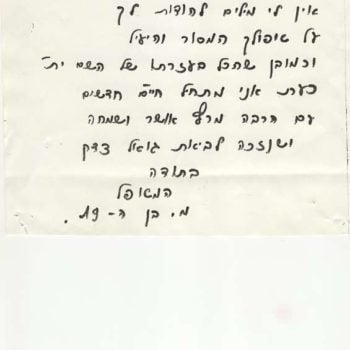 אין לי מילים להודות לך
על טיפולך המסור והיעיל
וכמובן שהכל בעזרתו של השם ית'
כעת אני מתחיל חיים חדשים
עם הרבה מרץ אושר ושמחה
ושנזכה לביאת גואל צדק
בתודה
המטופל
מ. בן ה-19.